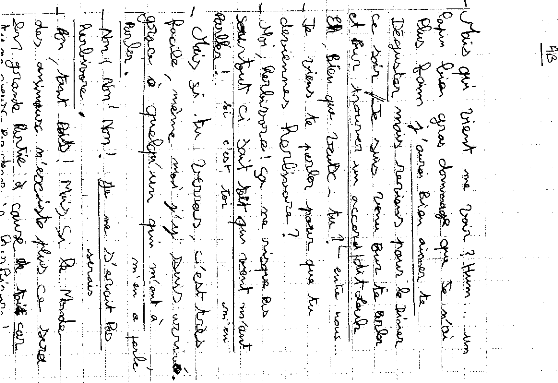 AB
- Mais qui vient me voir ? Hum... un
lapin bien gras dommage que je n'ai
Plus faim j'aurai Bien aimer te
Déguster mais reviens pour le Dîner
ce soir. Je suis venu Pour te Parler
et Pour trouver un accord dit
Eh, bien que veux-tu ? entre nous...
- Je viens te parler pour que tu
deviennes herbivore ?
- Moi, herbivore ! ça ne risque pas
surtout ci sait toi qui vient m'en
Parler ! si c'est toi m'en
- Mais si tu verras, c'est très
facile, même moi j'y suis arrivé.
grâce à quelqu'un qui m'en a
Parler. m'en a parlé
- Non ! Non ! Non ! Je ne Pas
herbivore. serais
- Bon, tant Pis ! Mais si le Monde
des animaux n'existe plus ce sera
en grande Partie à cause de toi car